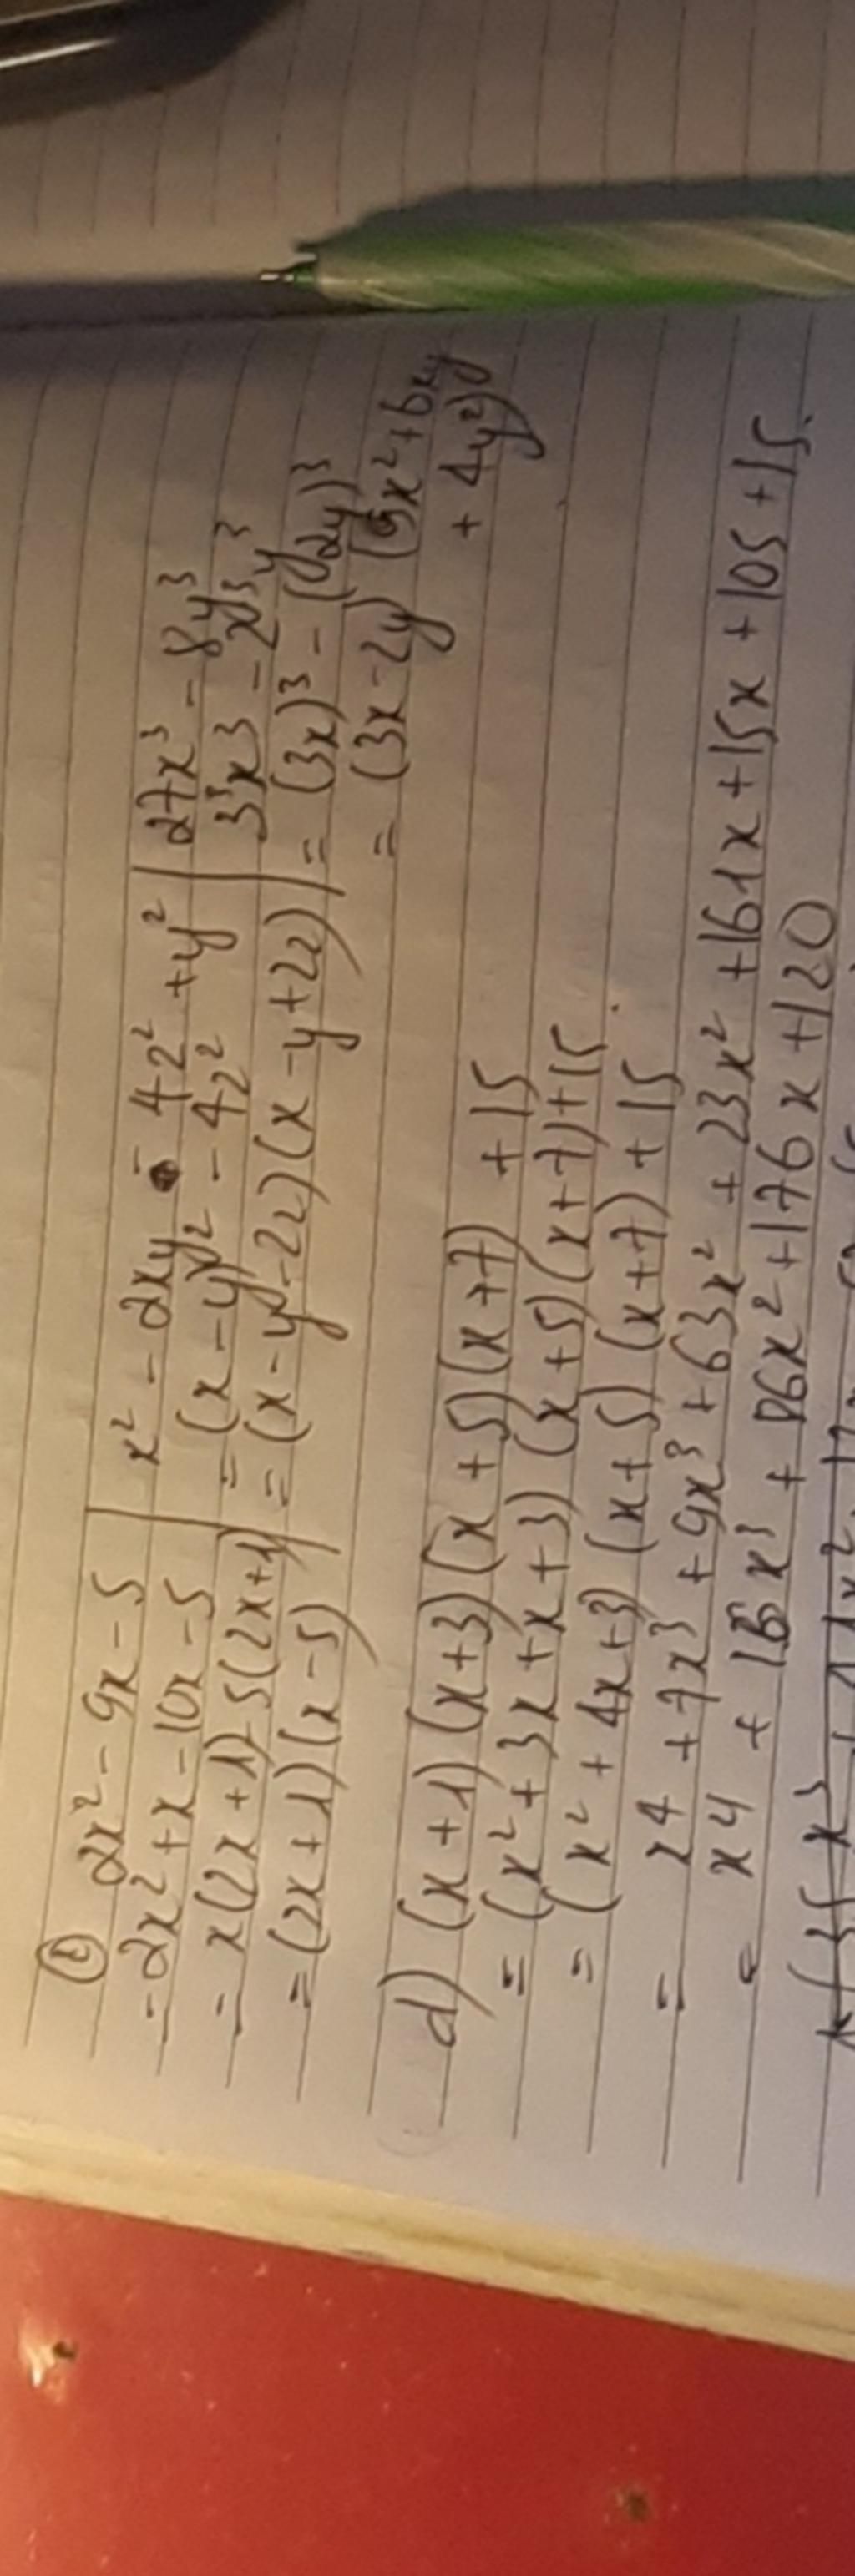 ① 2x² - 9x - 5
= 2x² + x - 10x - 5
= x(2x + 1) - 5(2x + 1)
= (2x + 1)(x - 5)
x² - 2xy - 4z² + y²
= (x - y)² - 4z²
= (x - y - 2z)(x - y + 2z)
27x³ - 8y³
3³x3 - 2³y³
= (3x)³ - (2y)³
= (3x - 2y) (9x² + 6xy
+ 4y²)
d) (x + 1) (x + 3) (x + 5) (x + 7) + 15
= (x² + 3x + x + 3) (x + 5) (x + 7) + 15
= (x² + 4x + 3) (x + 5) (x + 7) + 15
= x4 + 7x³ + 9x³ + 63x² + 23x² + 161x + 15x + 105 + 15.
= x4 + 16x³ + 86x² + 176x + 120